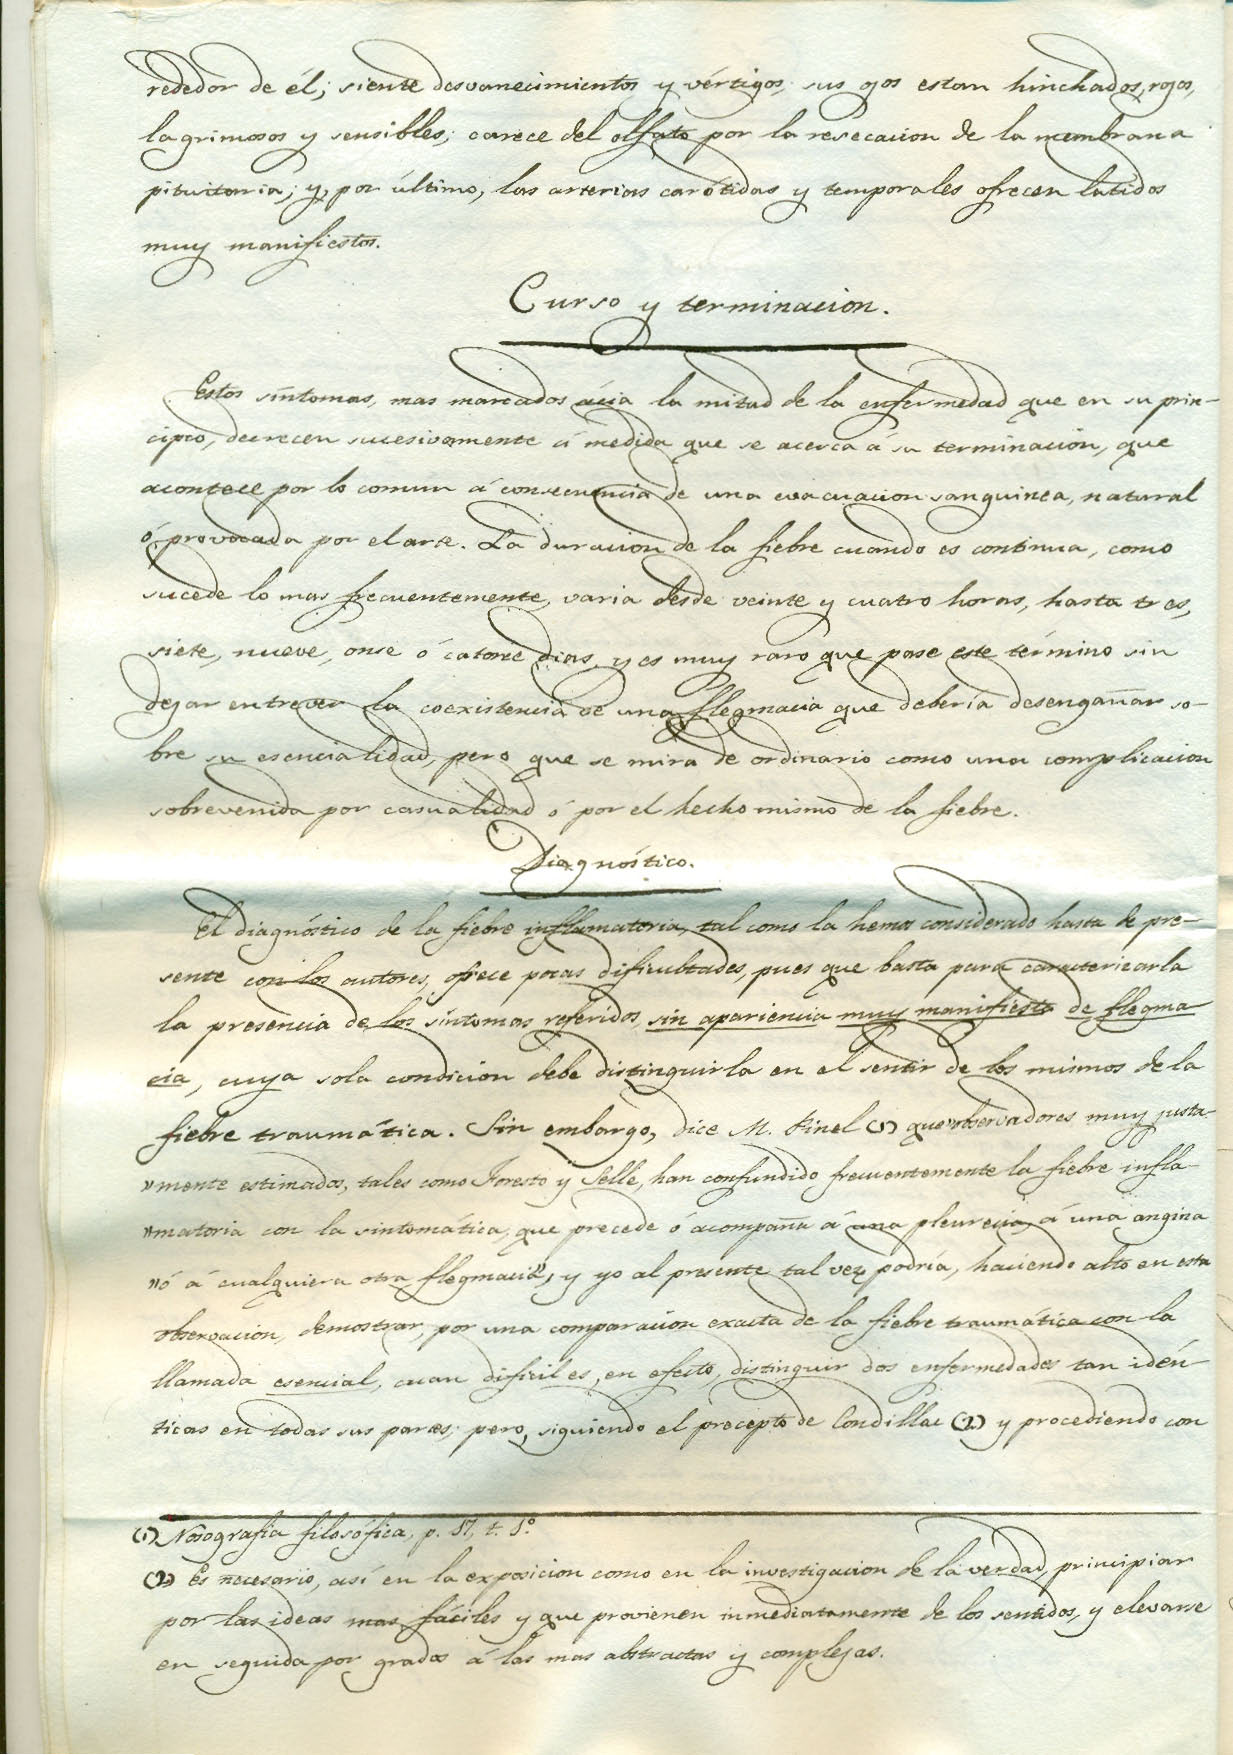 rededor de él; siente desvanecimientos y vértigos; sus ojos estan hinchados, rojos,
lagrimosos y sensibles; carece del olfato por la resecacion de la membrana
pituitaria; y, por último, las arterias carótidas y temporales ofrecen latidos
muy manifiestos.
Curso y terminacion.
Estos síntomas, mas marcados ácia la mitad de la enfermedad que en su prin-
cipio, decrecen sucesivamente á medida que se acerca á su terminacion, que
acontece por lo comun á consecuencia de una evacuacion sanguinea, natural
ó provocada por el arte. La duracion de la fiebre cuando es continua, como
sucede lo mas frecuentemente, varia desde veinte y cuatro horas, hasta tres,
siete, nueve, onse ó catorce dias, y es muy raro que pase este término sin
dejar entrever la coexistencia de una flegmacia que debería desengañar so-
bre su esencialidad, pero que se mira de ordinario como una complicacion
sobrevenida por casualidad ó por el hecho mismo de la fiebre.
Diagnóstico.
El diagnóstico de la fiebre inflamatoria, tal como la hemos considerado hasta de pre-
sente con los autores, ofrece pocas dificultades, pues que basta para caracterizarla
la presencia de los síntomas referidos, sin apariencia muy manifiesta de flegma
cia, cuya sola condicion debe distinguirla en el sentir de los mismos de la
fiebre traumática. Sin embargo, dice M. Pinel (1) que "observadores muy justa-
"mente estimados, tales como Foresto y Selle, han confundido frecuentemente la fiebre infla-
"matoria con la sintomática, que precede ó acompaña á una pleuresia, á una angina
"ó á cualquiera otra flegmacia", y yo al presente tal vez podría, haciendo alto en esta
observacion, demostrar, por una comparacion exacta de la fiebre traumática con la
llamada esencial, cuan dificil es, en efecto, distinguir dos enfermedades tan idén-
ticas en todas sus partes; pero, siguiendo el precepto de Condillac (2) y procediendo con
(1) Nosografia filosófica, p. 17, t. 1.º
(2) Es necesario, así en la exposicion como en la investigacion de la verdad, principiar
por las ideas mas fáciles y que provienen inmediatamente de los sentidos, y elevarse
en seguida por grados á las mas abstractas y complejas.